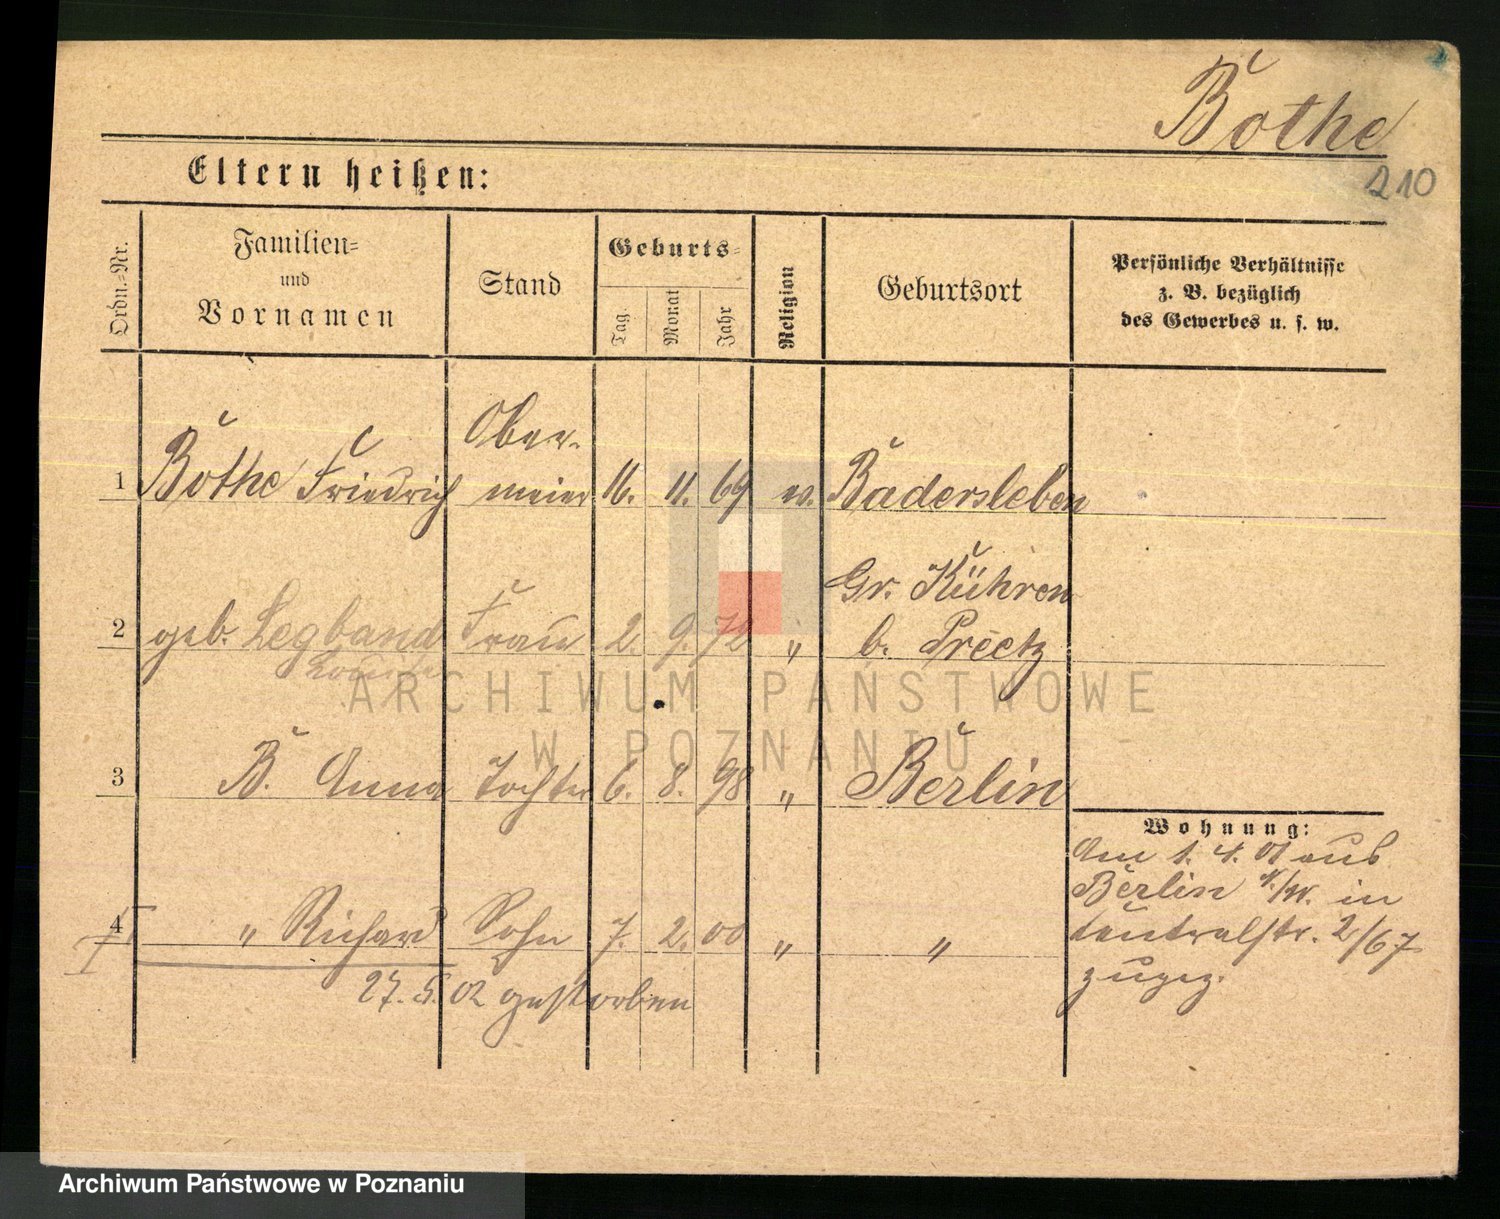 Bothe
210
Eltern heißen:
Ordn.-Nr.
Familien-
und
Vornamen
Stand
Geburts-
Tag.
Monat
Jahr
Religion
Geburtsort
Persönliche Verhältnisse
z. B. bezüglich
des Gewerbes u. s. w.
Ober-
1 Bothe Friedrich meier 16. 11. 69 ev. Badersleben
Gr. Kühren
2 geb. Legband Frau 2. 9. 72 " b. Preetz
3 B. Anna Tochter 6. 8. 98 " Berlin
Wohnung:
Am 1. 4. 01 aus
Berlin in
4 " Richard Sohn 7. 2. 00 " "
Centralstr. 2/67
zugez.
27. 5. 02 gestorben
ARCHIWUM PAŃSTWOWE
W POZNANIU
Archiwum Państwowe w Poznaniu